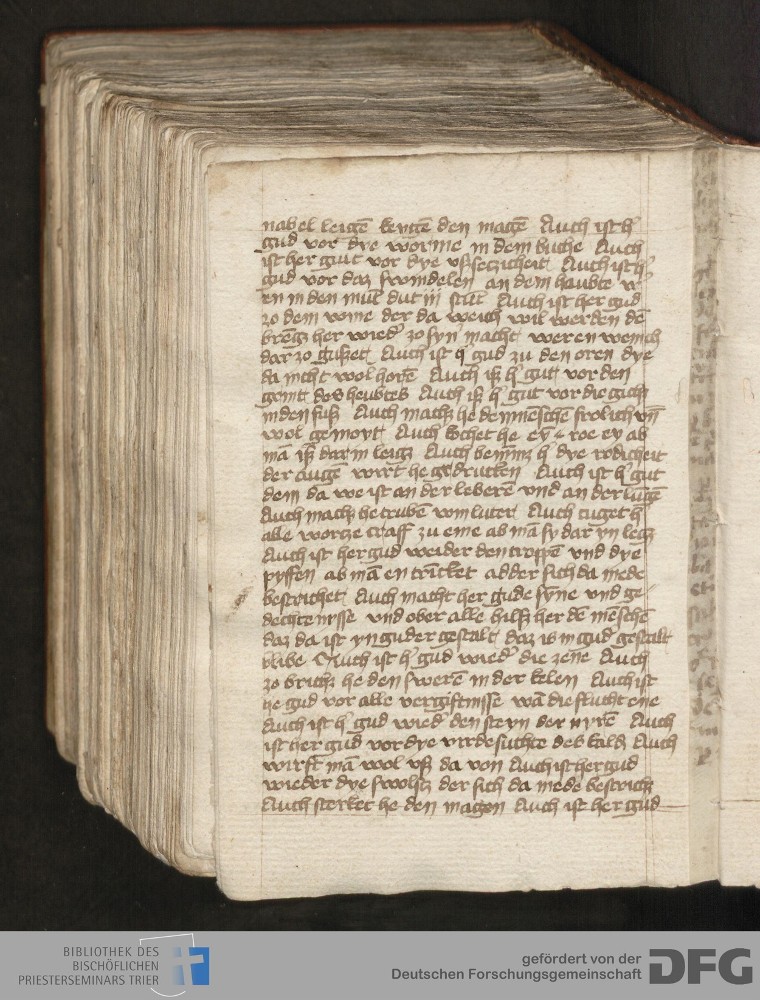 nabel leigē kengē den magē Auch ist h'
gud vor dye worme in dem buche Auch
ist her guut vor dye vssetzicheit Auch ist h'
gud vor daz swindelen an dem haubte w'
en in den mūt dut iij stūt Auch ist her gud
zo dem wine der da weich wil werden dē
brēgz her wied' zo syn' macht weren wenich
dar zo guszet Auch ist h' gud zu den oren dye
da nicht wol horē Auch isz h' gut vor den
gemtt des heubtes Auch isz h' gut vor die gicht
in den fusz Auch machz he den mēschē frolich vn̄
wol gemoyt Auch kochet he ey roe ey ab
mā isz dar in leigz Auch benimz h' dye rodicheit
der augē wirt he gedrucken Auch ist h' gut
dem da we ist an der leberē vnd an der lungē
Auch machz he trubē win luter Auch tuget h'
alle worze craff zu eme ab mā sy dar yn legz
Auch ist her gud weider den troppē vnd dye
pyffen ab mā en trīcket adder sich da mede
bestrichet Auch macht her gude syne vnd ge
dechtenysse vnd ober alle hilfz her dē mēschē
daz da ist yn guder gestalt daz is in gud' gestalt
blibe Auch ist h' gud wied' die zene Auch
zo brichz he den sweren in der kelen Auch ist
he gud vor alle vergiftnisse wā die flucht ene
Auch ist h' gud wied' den steyn der nyrē Auch
ist her gud vor dye vrdesuchte des kaldz Auch
wirft mā wol vsz da von Auch ist her gud
wieder dye swolstz der sich da mede bestrichz
Auch sterket he den magen Auch ist her gud
BIBLIOTHEK DES
BISCHÖFLICHEN
PRIESTERSEMINARS TRIER
gefördert von der
Deutschen Forschungsgemeinschaft
DFG